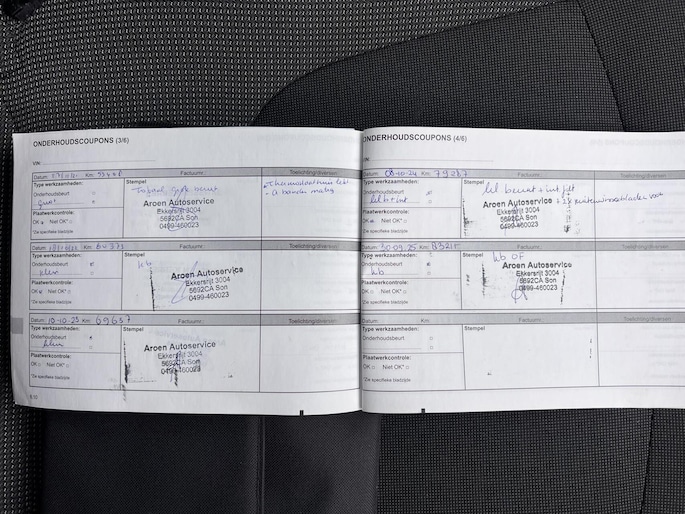 ONDERHOUDSCOUPONS (3/6)
VIN:
Datum: Km: Factuurnr.: Toelichting/diversen:
Type werkzaamheden: Stempel
Onderhoudsbeurt
groot
Plaatwerkcontrole:
OK Niet OK*
*Zie specifieke bladzijde
Aroen Autoservice
Ekkersrijt 3004
5692CA Son
0499-460023
Datum: Km: Factuurnr.: Toelichting/diversen:
Type werkzaamheden: Stempel
Onderhoudsbeurt
klein
Plaatwerkcontrole:
OK Niet OK*
*Zie specifieke bladzijde
Aroen Autoservice
Ekkersrijt 3004
5692CA Son
0499-460023
Datum: 10-10-23 Km: 69657 Factuurnr.: Toelichting/diversen:
Type werkzaamheden: Stempel
Onderhoudsbeurt
klein
Plaatwerkcontrole:
OK Niet OK*
*Zie specifieke bladzijde
Aroen Autoservice
Ekkersrijt 3004
5692CA Son
0499-460023
ONDERHOUDSCOUPONS (4/6)
VIN:
Datum: 08-10-24 Km: 79287 Factuurnr.: Toelichting/diversen:
Type werkzaamheden: Stempel
Onderhoudsbeurt
Plaatwerkcontrole:
OK Niet OK*
*Zie specifieke bladzijde
beurt + int filt
Aroen Autoservice
Ekkersrijt 3004
5692CA Son
0499-460023
Datum: 30-09-25 Km: Factuurnr.: Toelichting/diversen:
Type werkzaamheden: Stempel
Onderhoudsbeurt
kb
Plaatwerkcontrole:
OK Niet OK*
*Zie specifieke bladzijde
kb OF
Aroen Autoservice
Ekkersrijt 3004
5692CA Son
0499-460023
Datum: Km: Factuurnr.: Toelichting/diversen:
Type werkzaamheden: Stempel
Onderhoudsbeurt
Plaatwerkcontrole:
OK Niet OK*
*Zie specifieke bladzijde